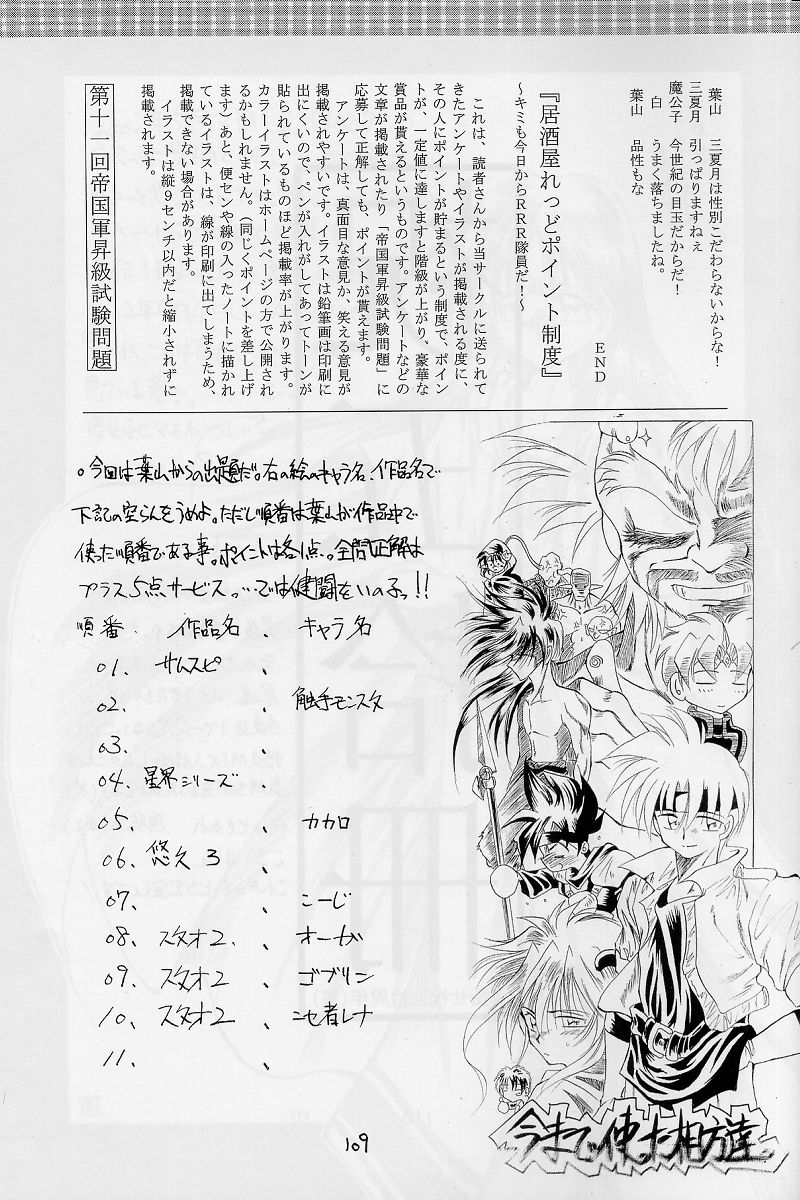 葉山　三夏月は性別こだわらないからな！
三夏月　引っぱりますねぇ
魔公子　今世紀の目玉だからだ！
白　うまく落ちましたね。
葉山　品性もな
END
『居酒屋れっどポイント制度』
～キミも今日からRRR隊員だ！～
これは、読者さんから当サークルに送られて
きたアンケートやイラストが掲載される度に、
その人にポイントが貯まるという制度で、ポイン
トが、一定値に達しますと階級が上がり、豪華な
賞品が貰えるというものです。アンケートなどの
文章が掲載されたり「帝国軍昇級試験問題」に
応募して正解しても、ポイントが貰えます。
アンケートは、真面目な意見か、笑える意見が
掲載されやすいです。イラストは鉛筆画は印刷に
出にくいので、ペンが入れがしてあってトーンが
貼られているものほど掲載率が上がります。
カラーイラストはホームページの方で公開され
るかもしれません。（同じくポイントを差し上げ
ます）あと、便センや線の入ったノートに描かれ
ているイラストは、線が印刷に出てしまうため、
掲載できない場合があります。
イラストは縦9センチ以内だと縮小されずに
掲載されます。
第十一回帝国軍昇級試験問題
○今回は葉山からの出題だ。右の絵のキャラ名、作品名で
下記の空らんをうめよ。ただし順番は葉山が作品中で
使った順番である事。ポイントは各1点。全問正解は
プラス5点サービス。…では健闘をいのるっ!!
順番．作品名、キャラ名
01. サムスピ、
02. 、触手モンスタ
03. 、
04. 星界シリーズ、
05. 、カカロ
06. 悠久3、
07. 、こーじ
08. スタオ2、オーガ
09. スタオ2、ゴブリン
10. スタオ2、ニセ者レナ
11. 、
今まで使た相方達
109